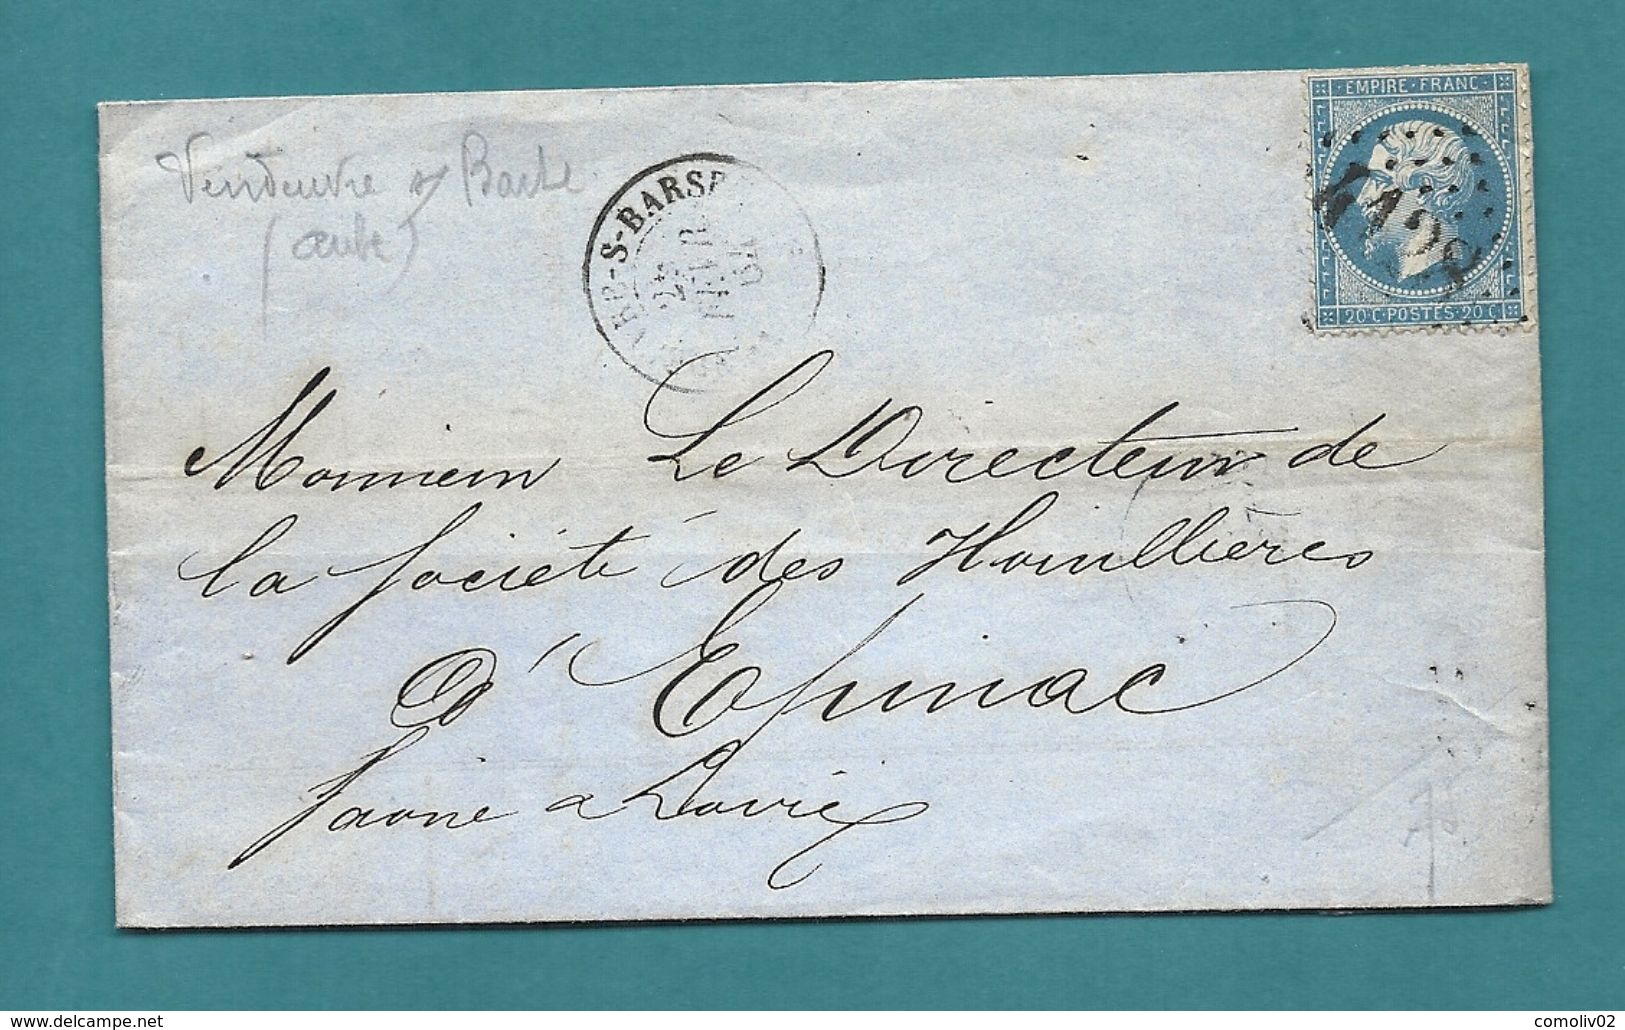 Vendeuvre s/ Barse
(aube)
VRE-S-BARSE
24
FEVR.
EMPIRE · FRANC
4128
20 C · POSTES · 20 C
Monsieur Le Directeur de
la Société des Houillères
D'Epinac
Saone a Loire
www.delcampe.net
comoliv02